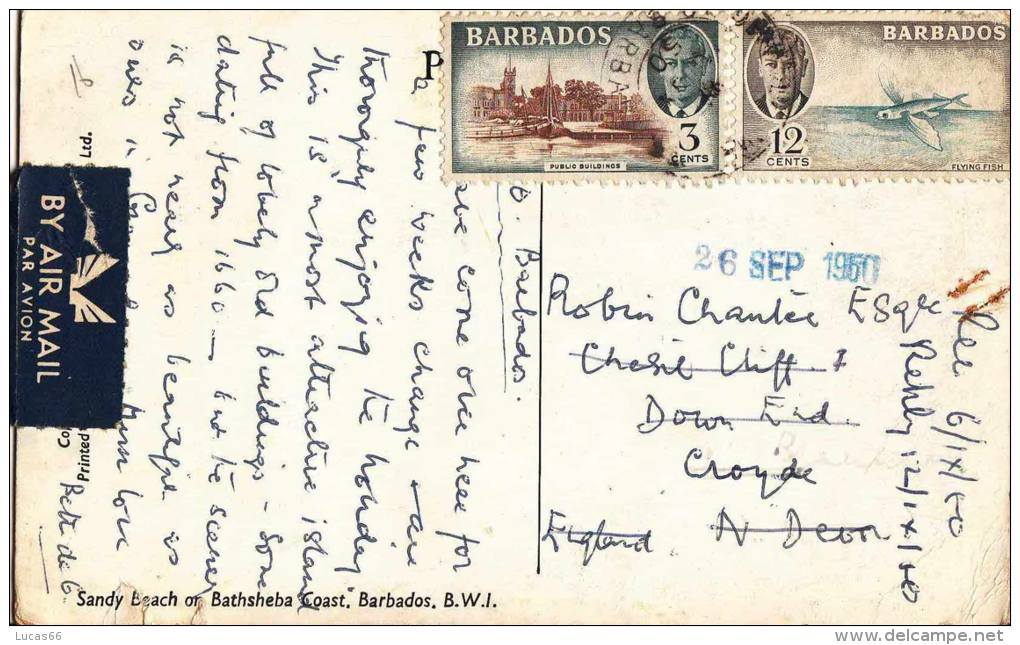 BARBADOS
3
CENTS
PUBLIC BUILDINGS
BARBADOS
12
CENTS
FLYING FISH
P
Barbados.
have come over here for
a few weeks change & are
thoroghly enjoying the holiday.
This is a most attractive island
full of lovely old buildings - Some
dating from 1660 - but the scenery
is not nearly as beautiful as
ours in
love
BY AIR MAIL
PAR AVION
Printed
Co
Ltd.
26 SEP 1950
Robin Chantée Esqre
Chesil Cliff
Down End.
Croyde
N Devon
England
Rec 6/1X/50
Reply 12/1X/50
Sandy Beach on Bathsheba Coast, Barbados, B.W.I.
Lucas66
www.delcampe.net